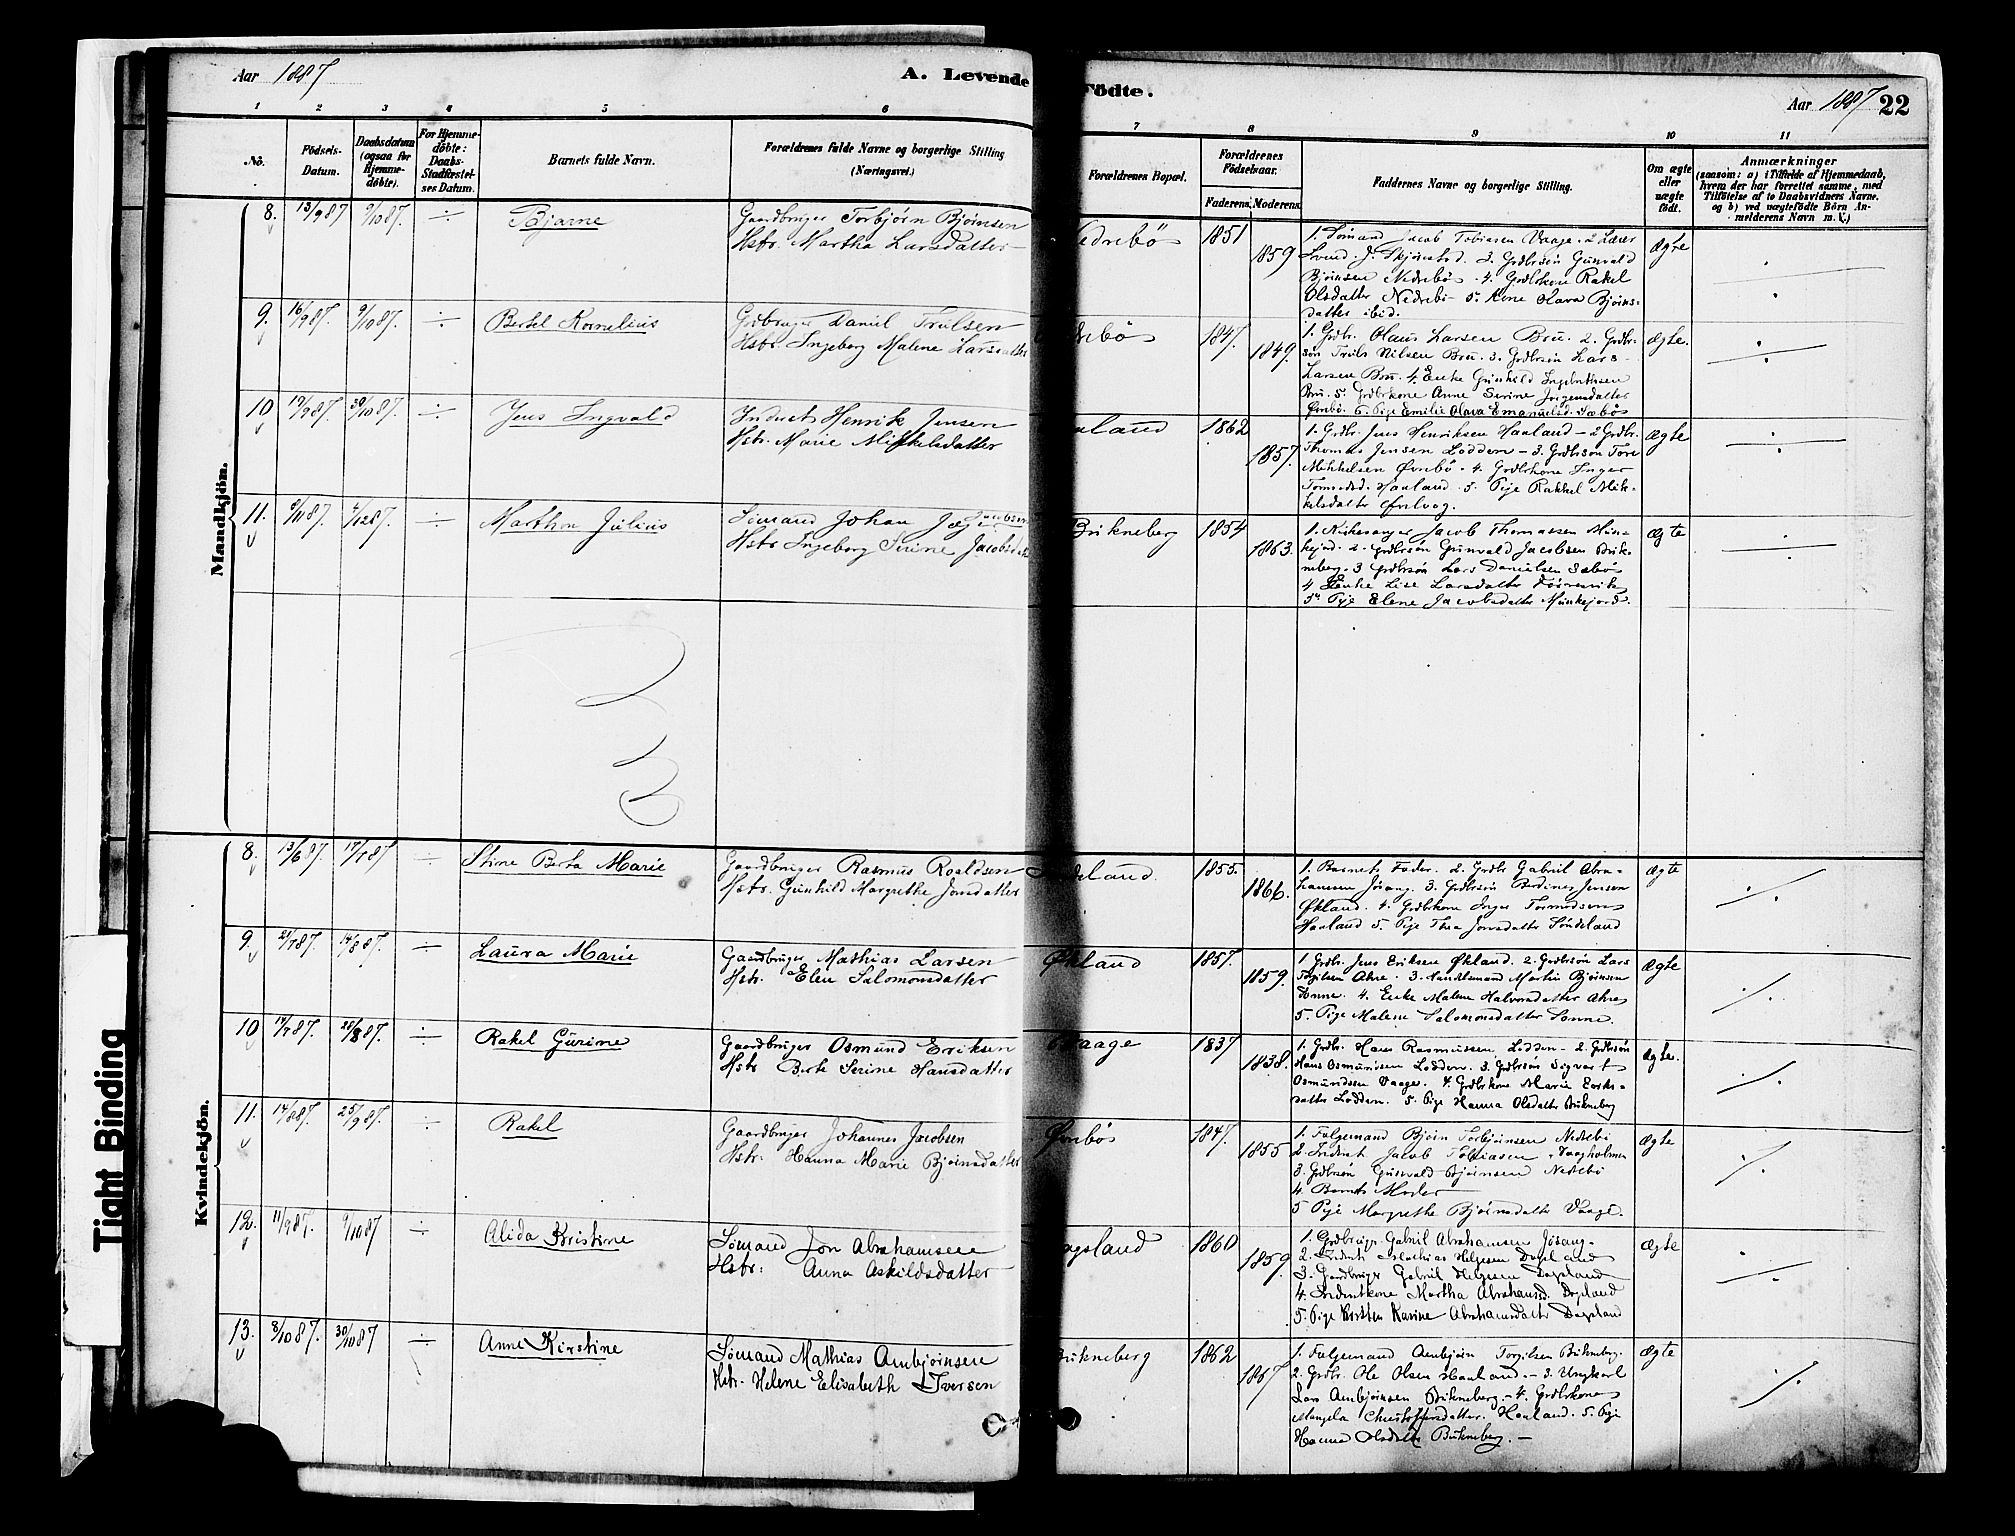 Aar 1887
A. Levende
Födte.
Aar 1887 22
1 2 3 4 5 6 7 8 9 10 11
No.
Födsels-
Datum.
Daabsdatum
(ogsaa for
Hjemme-
döbte).
For Hjemme-
döbte:
Daabs-
Stadfæstel-
ses Datum.
Barnets fulde Navn.
Forældrenes fulde Navne og borgerlige Stilling
(Næringsvei.)
Forældrenes Bopæl.
Forældrenes
Födselsaar.
Faderens. Moderens.
Faddernes Navne og borgerlige Stilling.
Om ægte
eller
uægte
födt.
Anmærkninger
(saasom: a) i Tilfælde af Hjemmedaab,
hvem der har forrettet samme, med
Tilföielse af to Daabsvidners Navne,
og b) ved uægtefödte Börn An-
melderens Navn m. V.)
Mandkjön.
8. 13/9 87 9/10 87. ÷ Bjarne
Gaardbruger Torbjörn Björnsen
Hstr. Martha Larsdatter
Nedrebö 1851 1859
1. Sömand Jacob Tobiasen Vaage. 2. Lærer
Svend J. 3. Grdbrsön Gunvald
Björnsen Nedrebö. 4. Grdbrkone Rakel
Olsdatter Nedrebö 5. Kone Olava Björns-
datter ibid.
ægte
9. 16/9 87. 9/10 87. ÷ Bertel Kornelius
Grbruger Daniel Trulsen
Hstr. Ingeborg Malene Larsdatter
1847. 1849.
1. Grdbr. Olaus Larsen Brü. 2. Grdbr-
sön Truls Nilsen Brü. 3. Grdbrsön Lars
Larsen Brü. 4. Enke Gunhild Ingebretsen
Brü. 5. Grdbrkone Anne Serine Jörgensdatter
Övrebö. 6. Pige Emilie Olava Emanuelsd. Sæbö
ægte.
10 19/9 87. 30/10 87. ÷ Jens Ingvald
Inderst Henrik Jensen
Hstr. Marie Mikkelsdatter
aland 1862 1857.
1. Grdbr. Jens Henriksen Haaland – 2 Grdbr.
Thomas Jensen Lodden – 3. Grdbrsön Tore
Mikkelsen Övrebö. 4. Grdbrkone Inger
Haaland. 5. Pige Rakkel Mik-
kelsdatter
ægte
11. 6/11 87. 4/12 87. ÷ Marthon Julius
Sömand Johan Jacobsen
Hstr Ingeborg Serine Jacobsd
Bukneberg 1854 1863.
1. Kirkesanger Jacob Thomassen Mün-
kejord. 2. Grdbrsön Gunvald Jacobsen Buk-
neberg. 3 Grdbrsön Lars Danielsen Sæbö
4 Enke Lise Larsdatter
5. Pige Elene Jacobsdatter Münkejord.
ægte
Kvindekjön.
8. 13/6 87. 17/7 87 ÷ Stine Berta Marie
Gaardbruger Rasmus Roaldsen
Hstr. Gunhild Margrethe Jonsdatter
1855. 1866.
1. Barnets Fader. 2. Grdbr Gabriel Abra-
hamsen Jösang. 3. Grdbrsön Berdines Jensen
Ökland. 4. Grdbrkone Inger
Haaland 5. Pige Thea Jonsdatter Söndeland
ægte
9. 21/7 87. 14/8 87. ÷ Laura Marie
Gaardbruger Mathias Larsen
Hstr. Elen Salomonsdatter
Ökland 1857. 1859.
1 Grdbr. Jens Eriksen Ökland. 2. Grdbrsön Lars
Torgilsen Ahre. 3. Handelsmand Martin Björnsen
Sönne. 4. Enke Malene Halvorsdatter Ahre
5. Pige Malene Salomonsdatter Sönne.
ægte
10 14/7 87. 28/8 87. ÷ Rakel Gurine
Gaardbruger Osmund Eriksen
Hstr Berte Serine Hansdatter
Vaage 1837 1838.
1. Grdbr. Hans Rasmussen Lodden. 2. Grdbrsön
Hans Osmundsen Lodden. 3. Grdbrsön Sigvart
Osmundsen Vaage. 4. Grdbrkone Marie Eriks-
datter Lodden. 5. Pige Hanna Olsdatter Bukneberg
ægte.
11. 14/8 87. 25/9 87. ÷ Rakel
Gaardbruger Johannes Jacobsen
Hstr. Hanna Marie Björnsdatter
Övrebö 1847. 1855
1. Fölgemand Björn Torbjörnsen Nedrebö
2. Inderst Jacob Tobiasen Vaageholmen
3. Grdbrsön Gunvald Björnsen Nedrebö
4. Barnets Moder
5 Pige Margrethe Björnsdatter Vaage.
ægte
12. 11/9 87. 9/10 87 ÷ Alida Kristine
Sömand Jon Abrahamsen
Hstr: Anna Askildsdatter
agsland 1860 1859.
1. Grdbruger Gabriel Abrahamsen Jösang.
2. Inderst Mathias Helgesen Dagsland
3. Gaardbruger Gabriel Helgesen Dagsland
4. Inderstkone Martha Abrahamsd. Dagsland
5. Pige Kirsten Karine Abrahamsdatter Dagsland
ægte
13. 8/10 87. 30/10 87 ÷ Anne Kirstine
Sömand Mathias Ambjörnsen
Hstr. Helene Elisabeth Iversen
Bukneberg 1862 1867
1. Fölgemand Ambjörn Torgilsen Bukneberg.
2. Grdbr. Ole Olsen Haaland. – 3. Ungkarl
Lars Ambjörnsen Bukneberg. – 4. Grdbrkone
Mangela Christoffersdatter. Haaland. 5. Pige
Hanna Olsdatter Bukneberg. –
ægte
Tight Binding